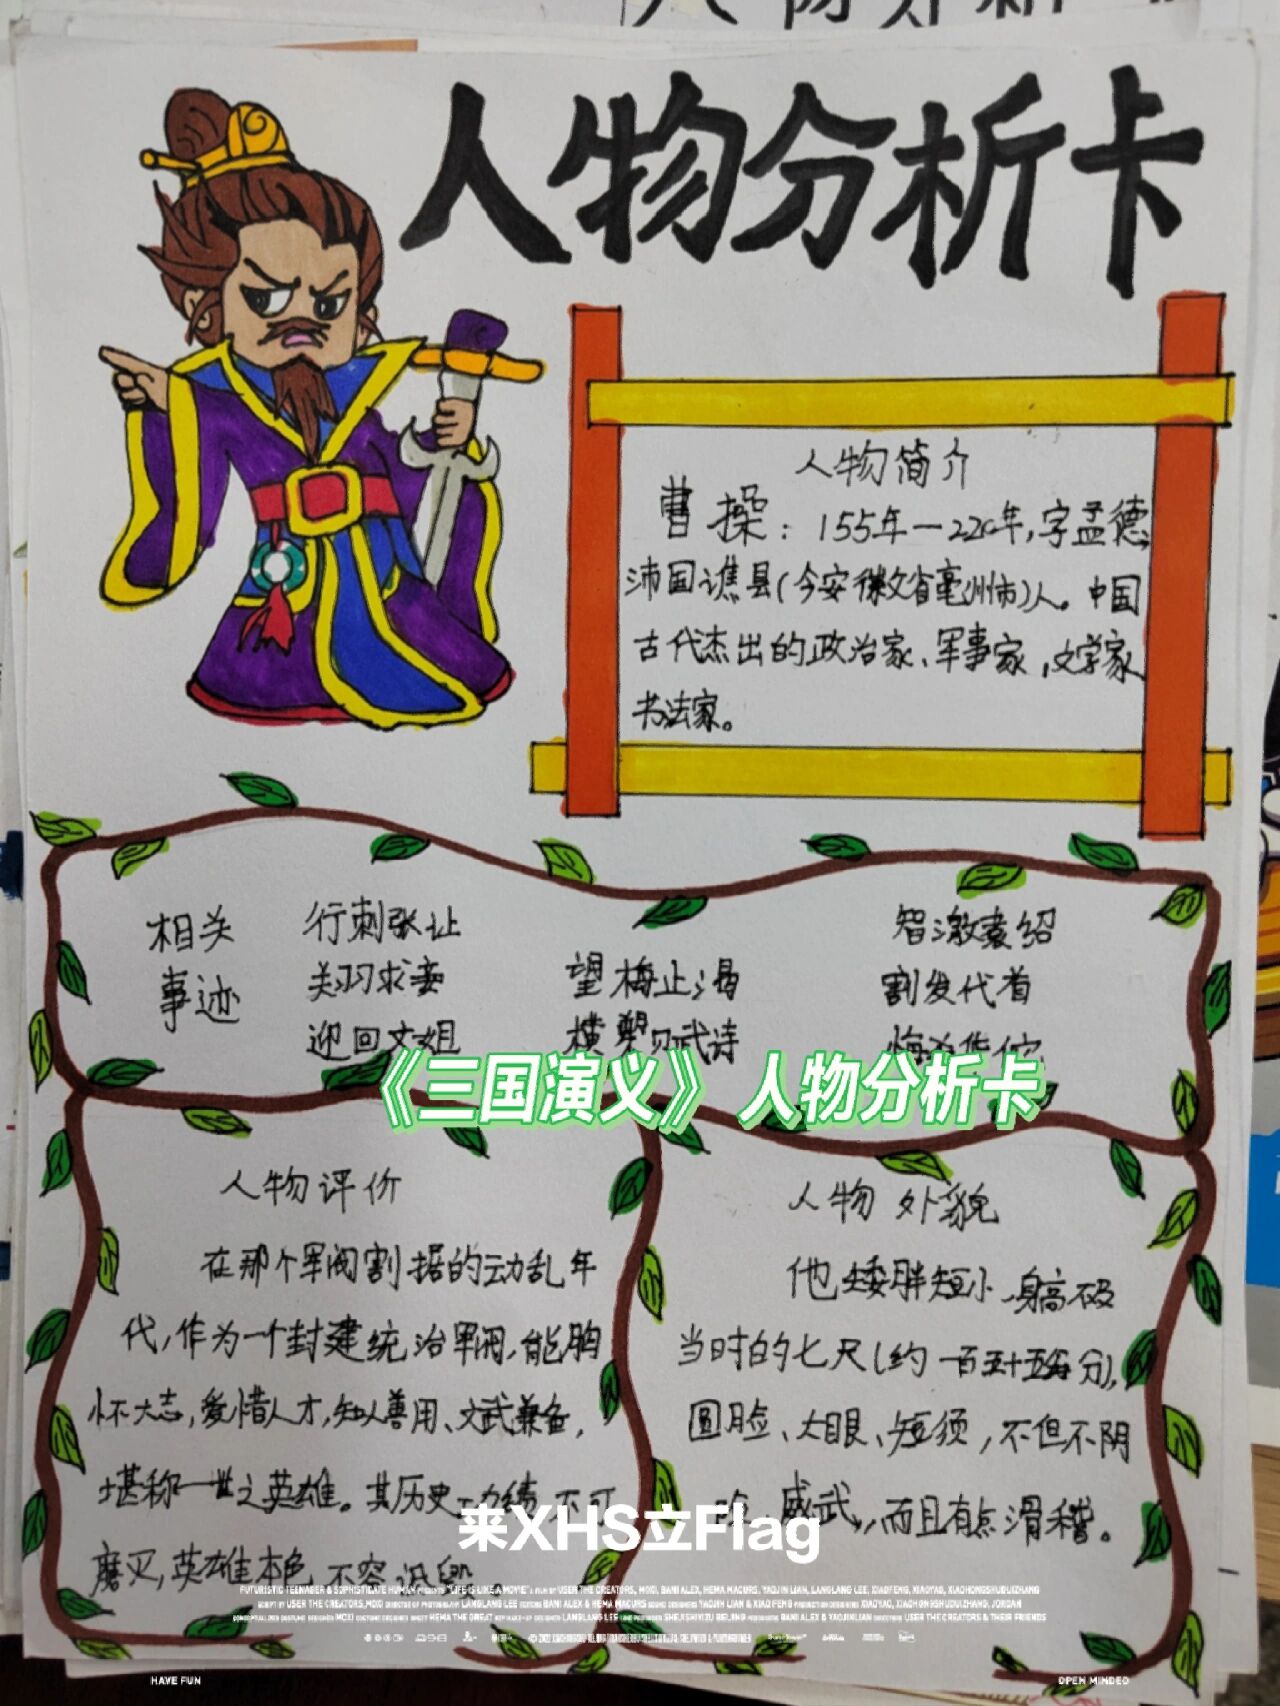 人物分析卡
人物简介
曹操：155年－220年，字孟德，
沛国谯县(今安徽省亳州市)人。中国
古代杰出的政治家、军事家，文学家
书法家。
相关
事迹
行刺张让
关羽求妾
迎回文姬
望梅止渴
横槊赋诗
智激袁绍
割发代首
悔杀华佗
《三国演义》人物分析卡
人物评价
在那个军阀割据的动乱年
代，作为一个封建统治军阀，能胸
怀大志，爱惜人才，知人善用、文武兼备，
堪称一世之英雄。其历史功绩不可
磨灭，英雄本色不容诋毁
人物外貌
他矮胖短小，身高不及
当时的七尺(约一百五十五公分)，
圆脸、大眼、短须，不但不阴
威武，而且有点滑稽。
来XHS立Flag
HAVE FUN
OPEN MINDED